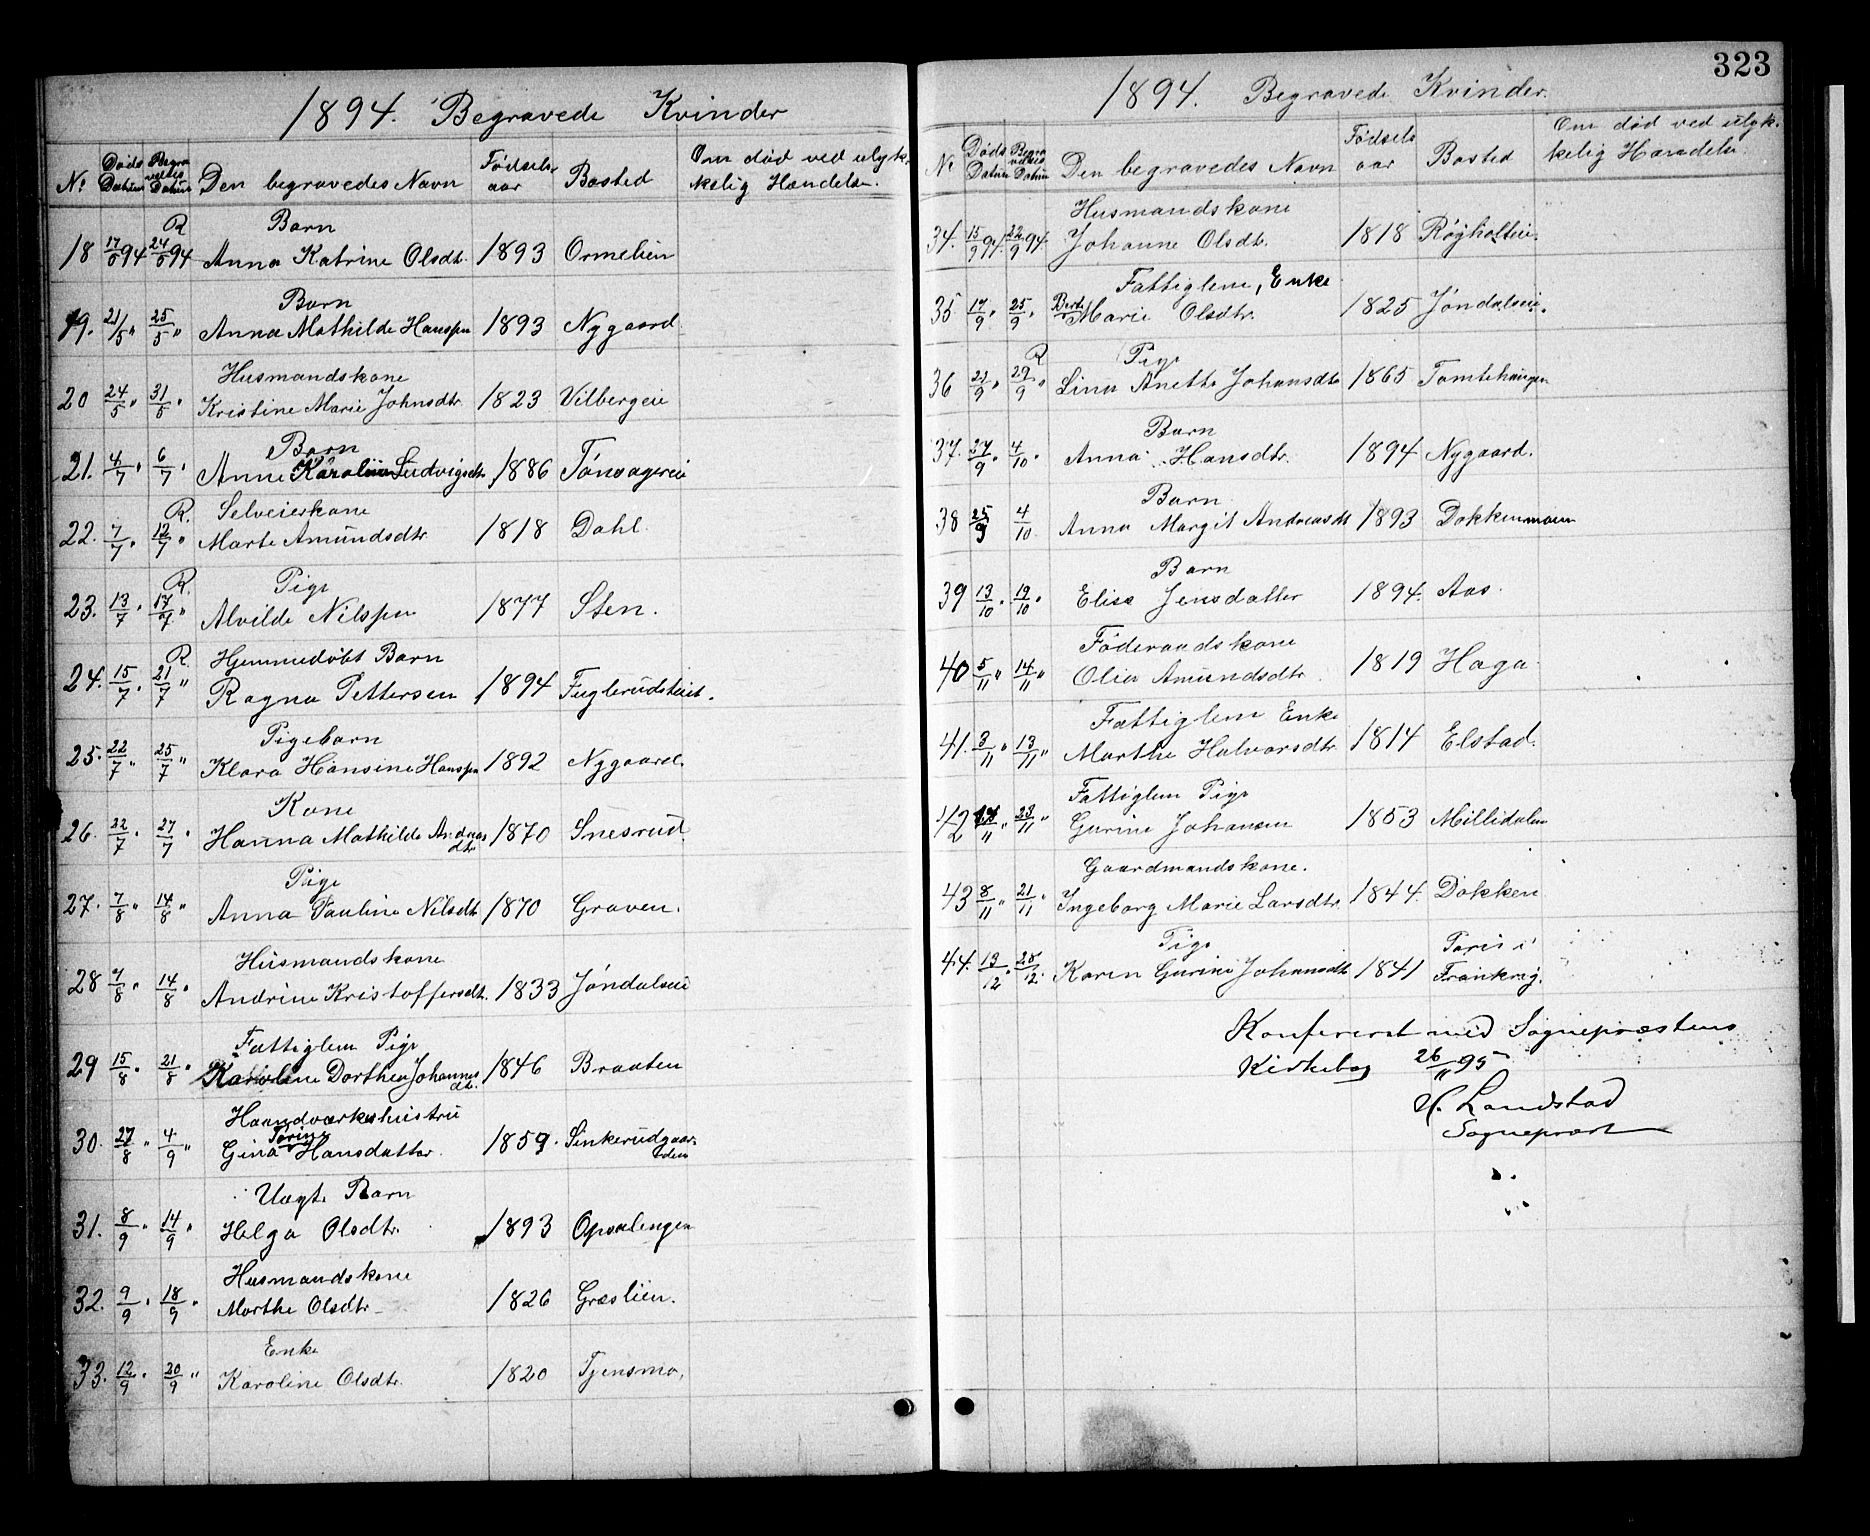 323
1894. Begravede Kvinder
No Døds Datum Begravelses Datum Den begravedes Navn Fødselsaar Bosted Om død ved ulykkelig Hændelse.
R Barn
18 17/5 94 24/5 94 Anna Katrine Olsdt. 1893 Ormelien
Barn
19. 21/5 " 25/5 " Anna Mathilde Hanssen 1893 Nygaard
Husmandskone
20 24/5 " 31/5 " Kristine Marie Johnsdtr 1823 Vilbergeie
Barn
21. 4/7 " 6/7 " Anne Karoline Ludvigsdtr 1886 Tønsagereie
R. Selveierskone
22. 7/7 " 12/7 " Marte Amundsdtr 1818 Dahl.
R. Pige
23. 13/7 " 17/7 " Alvilde Nilssen 1877 Sten.
R Hjemmedøbt Barn
24. 15/7 " 21/7 " Ragna Pettersen 1894 Fuglerudsteiet.
Pigebarn
25. 22/7 " 25/7 " Klara Hansine Hanssen 1892 Nygaard.
Kone
26. 22/7 " 27/7 " Hanna Mathilde Andreasdtr 1870 Snesrud
Pige
27. 7/8 " 14/8 " Anna Pauline Nilsdt. 1870 Graven.
Husmandskone
28 7/8 " 14/8 " Andrine Kristoffersdt. 1833 Jøndalseie
Fattiglem Pige
29 15/8 " 21/8 " Karoline Dorthea Johannesdtr. 1846 Braaten
Haandværkerhustru
30. 27/8 " 4/9 " Gina Torine Hansdatter. 1859. Sinkerudgaarden
Uægte Barn
31. 8/9 " 14/9 " Helga Olsdtr. 1893 Opsalengen
Husmandskone
32. 9/9 " 18/9 " Marthe Olsdtr 1826 Græslien.
Enke
33. 12/9 " 20/9 " Karoline Olsdtr. 1820 Tjensmo,
1894. Begravede Kvinder.
No Døds Datum Begravelses Datum Den begravedes Navn Fødselsaar Bosted Om død ved ulykkelig Hændelse
Husmandskone
34. 15/9 94. 22/9 94. Johanne Olsdtr. 1818 Røyholteie.
Fattiglem, Enke
35 17/9 " 25/9 " Berte Marie Olsdtr. 1825 Jøndalseie.
R Pige
36 22/9 " 29/9 " Lina Anette Johansdtr 1865 Tomtehaugen
Barn
37. 27/9 " 4/10 " Anna Hansdtr. 1894 Nygaard.
Barn
38 25/9 4/10. Anna Margit Andreasdt 1893 Dokkenmoen
Barn
39 13/10 " 19/10 " Elise Jensdatter 1894. Aas.
Føderaadskone
40 5/11 " 14/11 " Olia Amundsdtr. 1819 Haga
Fattiglem Enke
41. 3/11 " 13/11 " Marthe Halvorsdtr. 1814 Elstad.
Fattiglem Pige
42 14/11 " 23/11 " Gurine Johansen 1853 Millidalen
Gaardmandskone.
43 8/11 " 21/11 " Ingeborg Marie Larsdtr. 1844. Dokken
Pige Paris i
44. 13/12 " 28/12. Karen Gurine Johansdt 1841 Frankrig.
Konfereret med Sognepræstens
Kirkebog 26/11 95
H. Landstad
Sognepræst